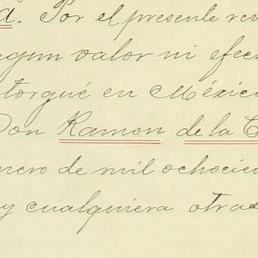 a. Por el presente rev
gun valor ni efec
torgué en México
Don Ramon de la C
nero de mil ochocie
y cualquiera otras